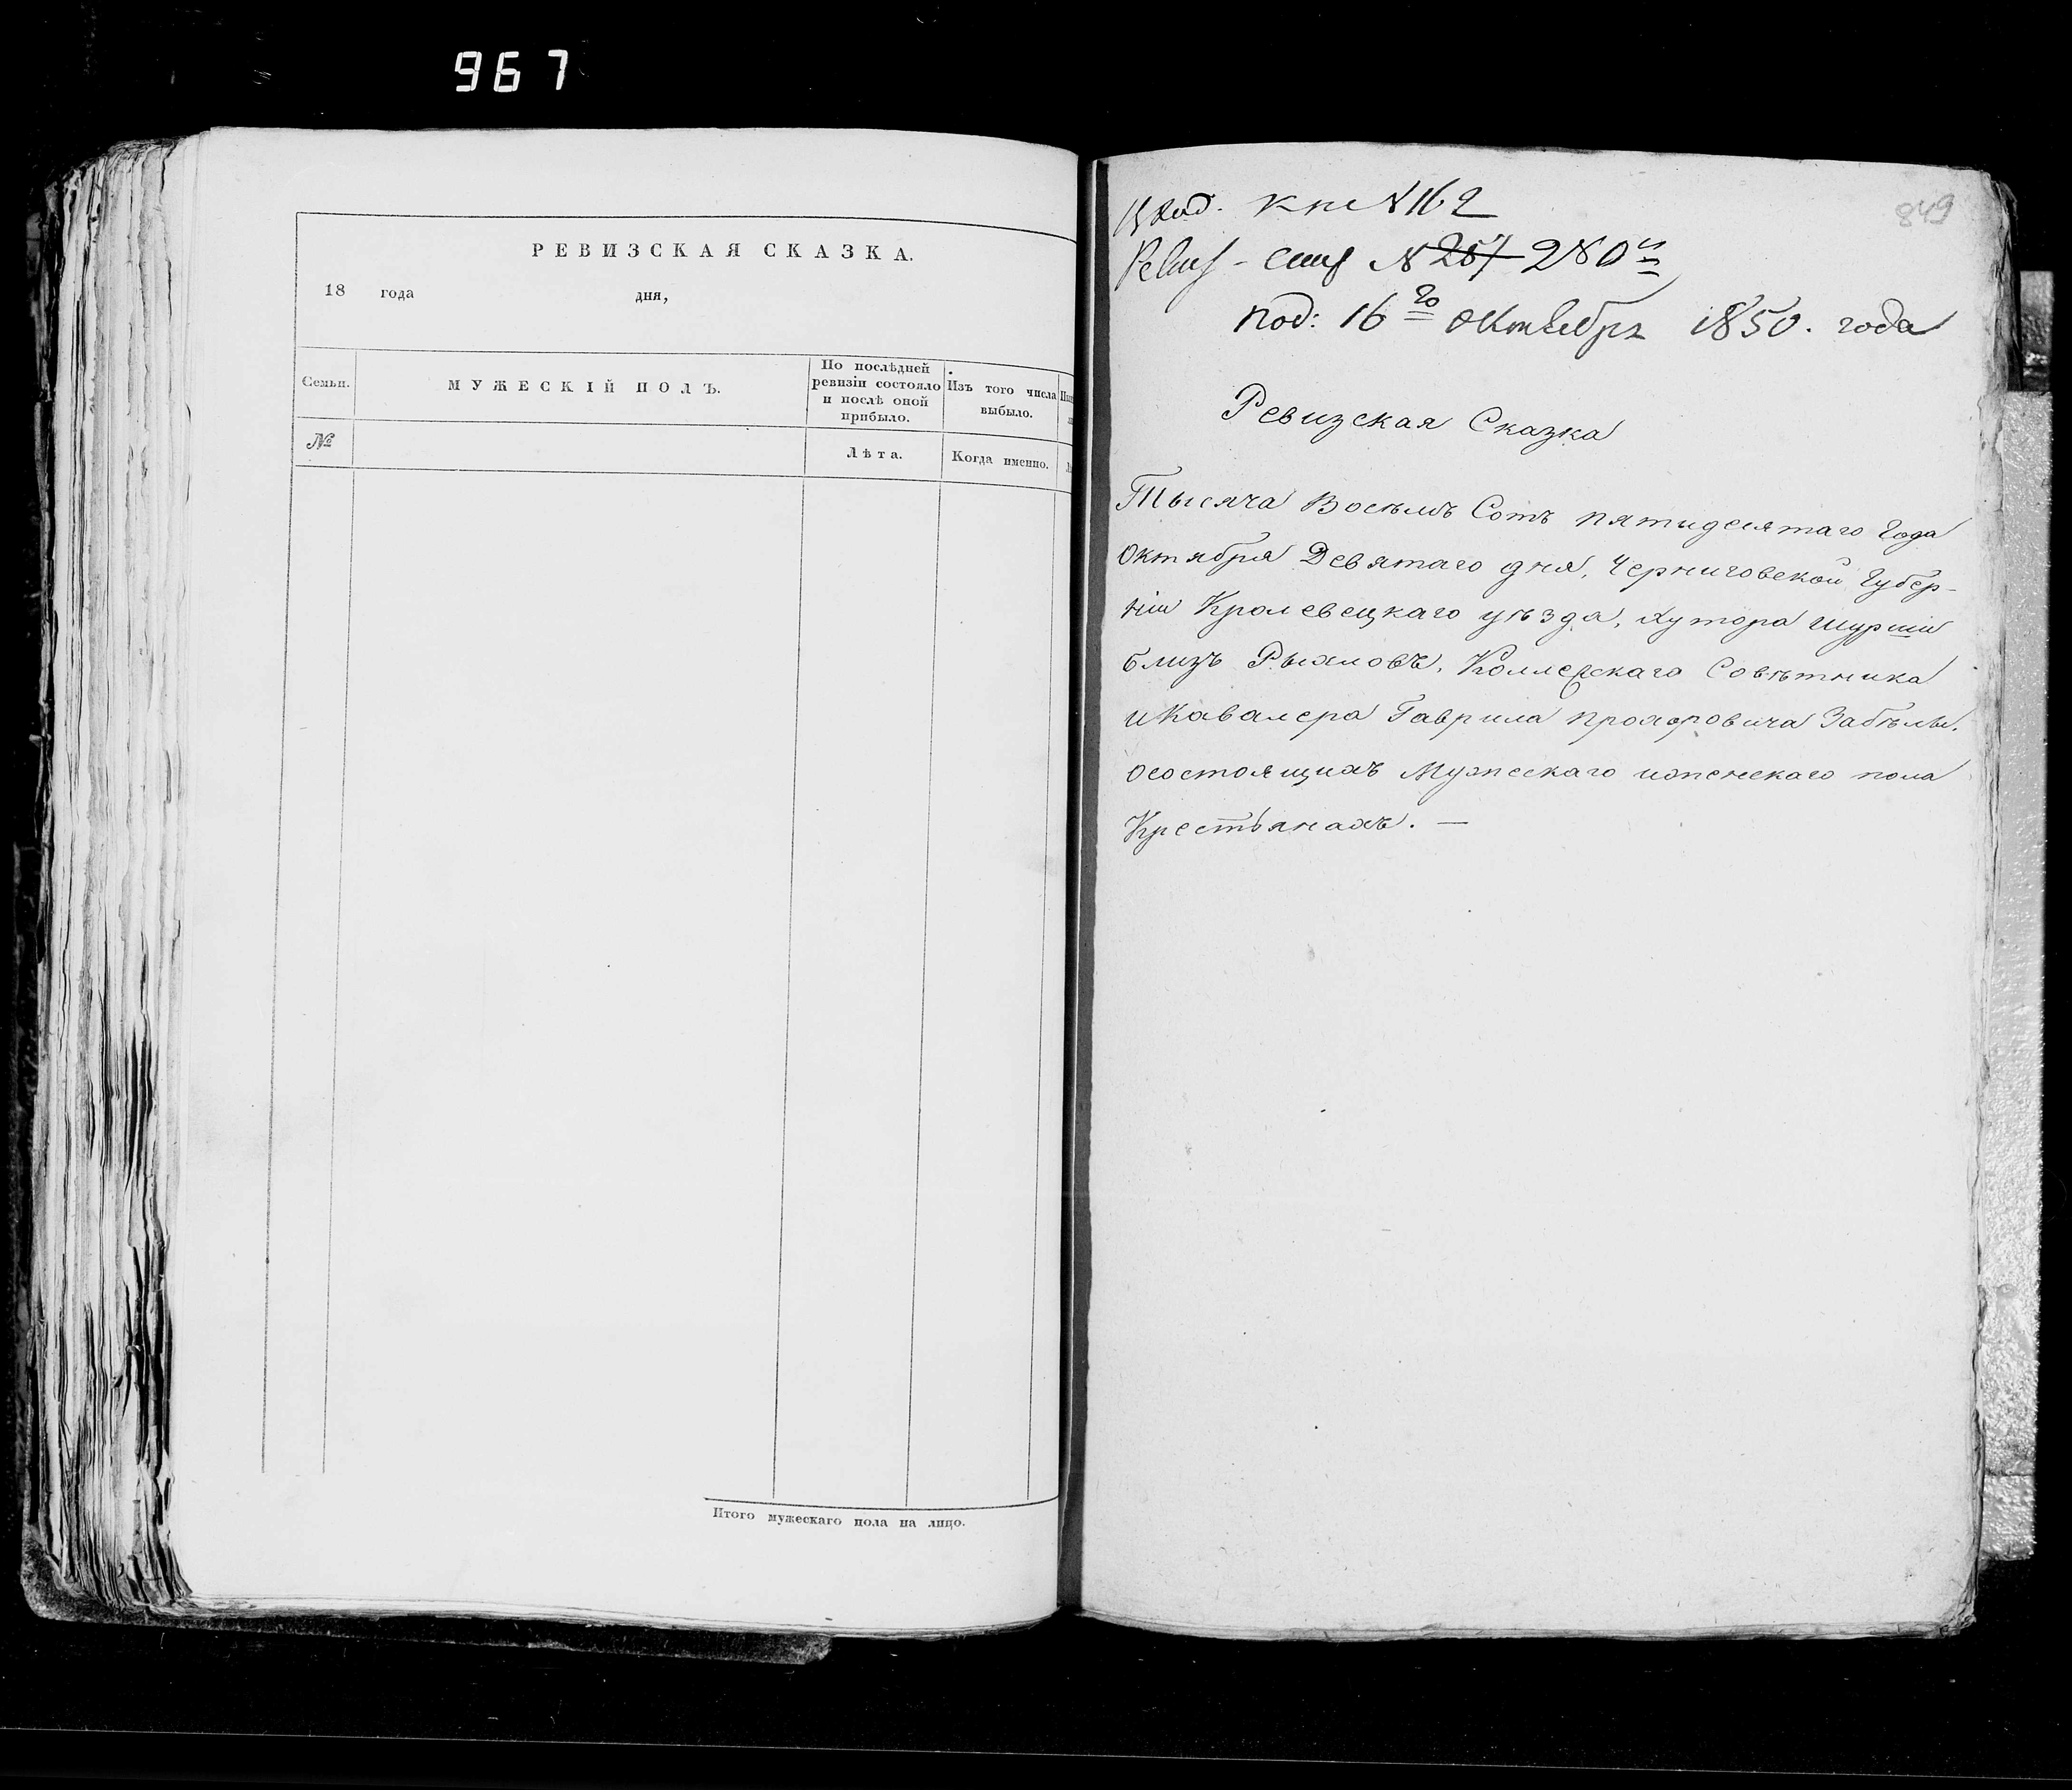 967
РЕВИЗСКАЯ СКАЗКА.
18 года дня,
Семьи.
МУЖЕСКІЙ ПОЛЪ.
По послѣдней
ревизіи состояло
и послѣ оной
прибыло.
Изъ того числа
выбыло.
№
Лѣта.
Когда именно.
Итого мужескаго пола на лицо.
849
Вход. кни №162
Ревиз - 280
под: 16го октября 1850. года
Ревизская Сказка
Тысяча Восемъ Сотъ пятидесятаго Года
Октября Девятаго дня, Черниговской Губер-
ніи Кролевецкаго уѣзда, Хутора
близъ Рыхловъ, Коллежскаго Совѣтника
и Кавалера Гаврила Прохоровича Забѣлы.
осостоящихъ Мужескаго иженскаго пола
Крестьянахъ. —